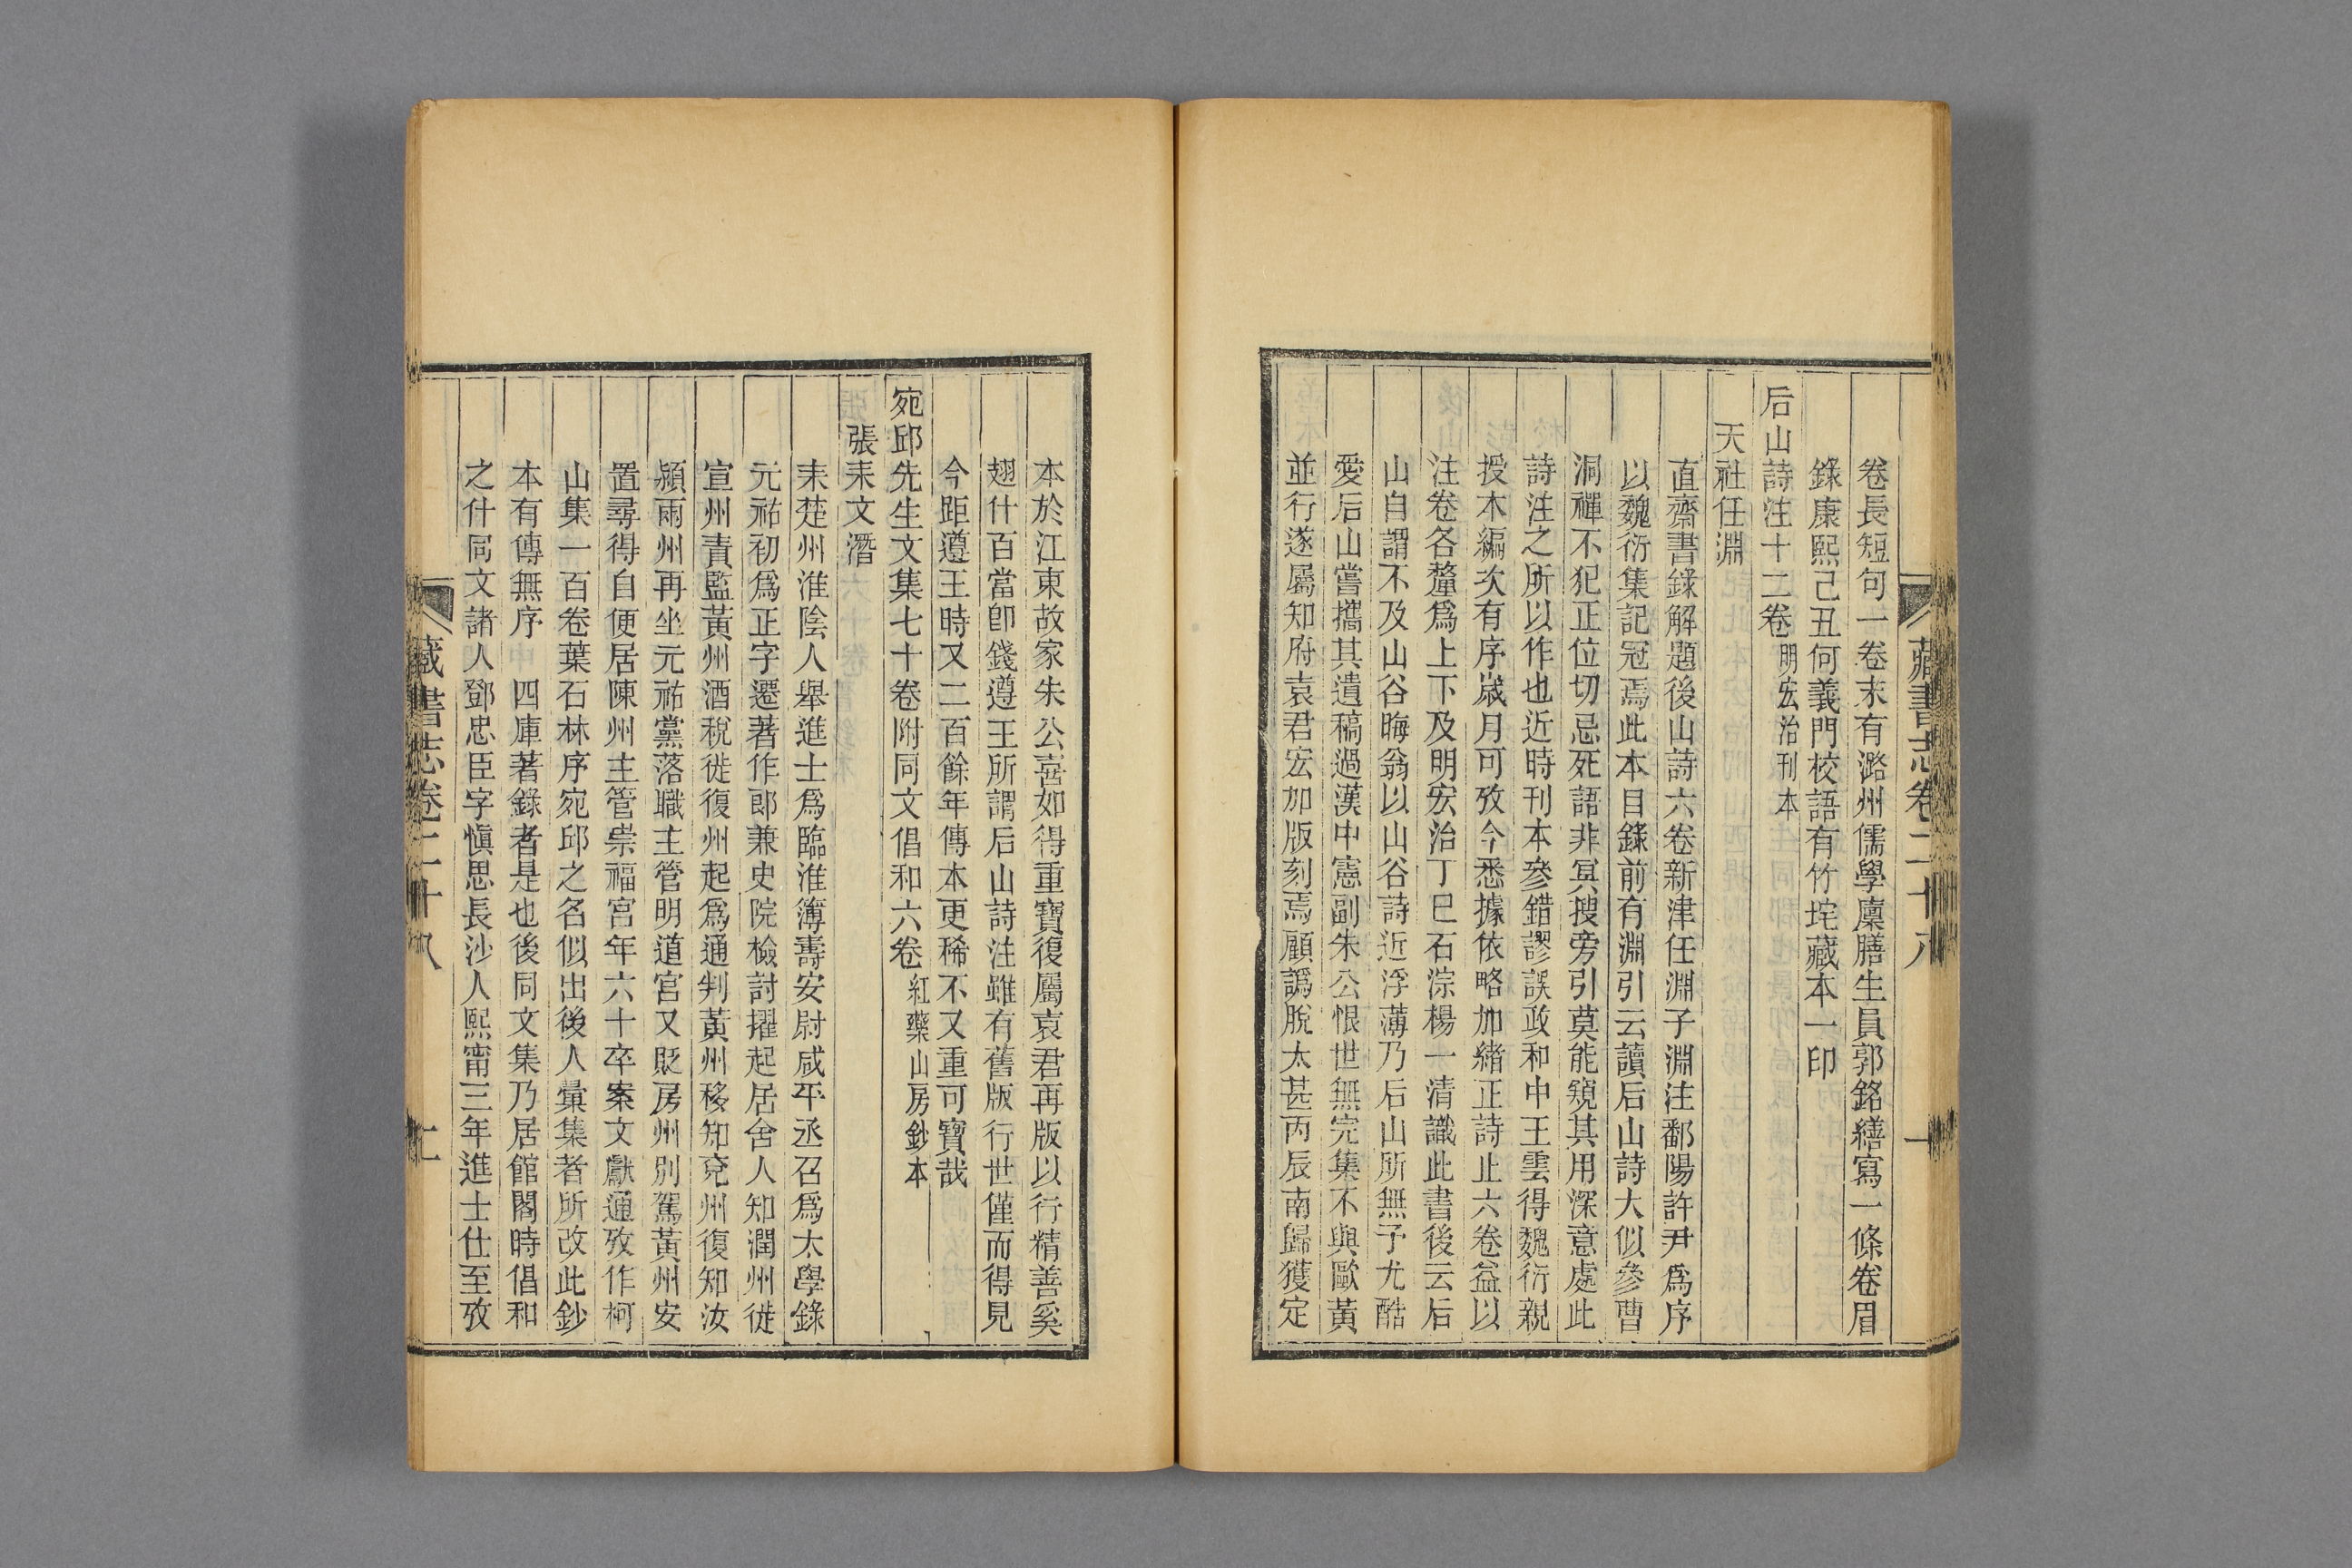 卷長短句一卷末有潞州儒學廩膳生員郭銘繕寫一條卷眉
錄康熙己丑何義門校語有竹垞藏本一印
后山詩注十二卷 明宏治刊本
天社任淵
直齋書錄解題後山詩六卷新津任淵子淵注鄱陽許尹爲序
以魏衍集記冠焉此本目錄前有淵引云讀后山詩大似參曹
洞禪不犯正位切忌死語非冥搜旁引莫能窺其用深意處此
詩注之所以作也近時刊本參錯謬誤政和中王雲得魏衍親
授木編次有序歲月可攷今悉據依略加緒正詩止六卷益以
注卷各釐爲上下及明宏治丁巳石淙楊一清識此書後云后
山自謂不及山谷晦翁以山谷詩近浮薄乃后山所無予尤酷
愛后山嘗攜其遺稿過漢中憲副朱公恨世無完集不與歐黃
並行遂屬知府袁君宏加版刻焉顧譌脫太甚丙辰南歸獲定
本於江東故家朱公喜如得重寶復屬袁君再版以行精善奚
翅什百當卽錢遵王所謂后山詩注雖有舊版行世僅而得見
今距遵王時又二百餘年傳本更稀不又重可寶哉
宛邱先生文集七十卷附同文倡和六卷 紅藥山房鈔本
張耒文潛
耒楚州淮陰人舉進士爲臨淮簿壽安尉咸平丞召爲太學錄
元祐初爲正字遷著作郎兼史院檢討擢起居舍人知潤州徙
宣州責監黃州酒稅徙復州起爲通判黃州移知兗州復知汝
潁兩州再坐元祐黨落職主管明道宮又貶房州別駕黃州安
置尋得自便居陳州主管崇福宮年六十卒案文獻通攷作柯
山集一百卷葉石林序宛邱之名似出後人彙集者所改此鈔
本有傳無序 四庫著錄者是也後同文集乃居館閣時倡和
之什同文諸人鄧忠臣字愼思長沙人熙甯三年進士仕至攷
藏書志卷二十八